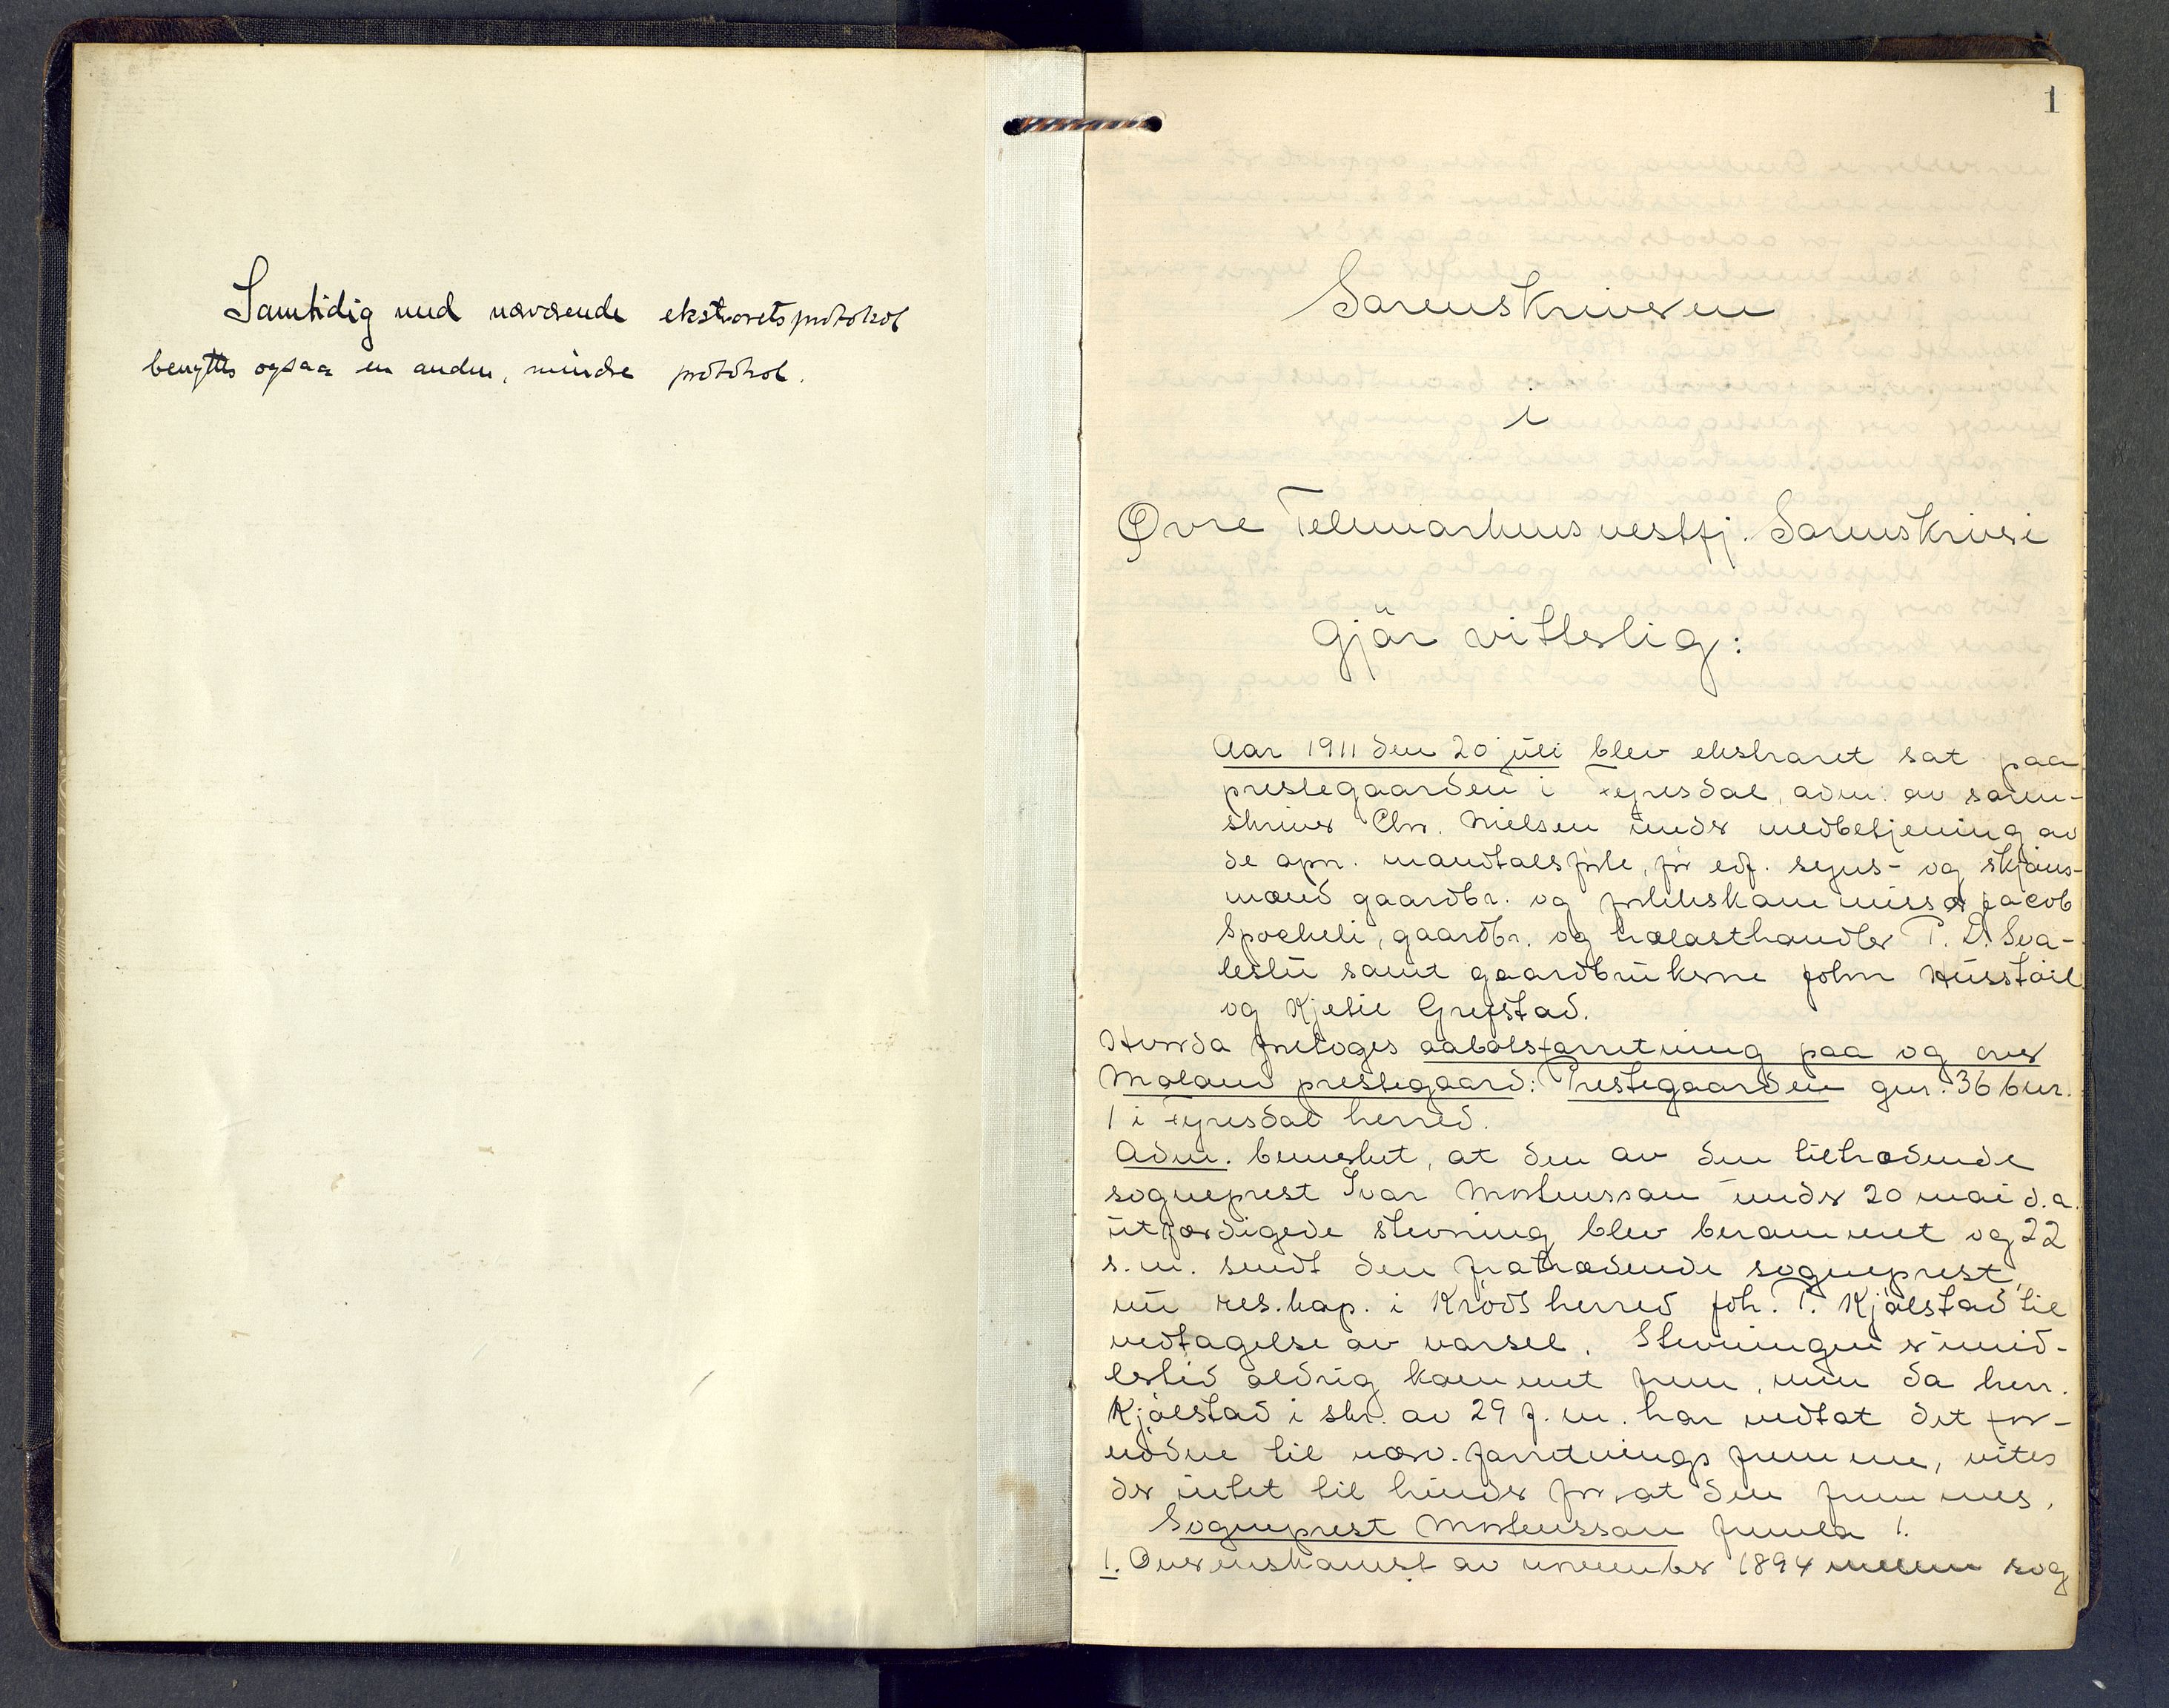 Samtidig med nærværende ekstraretsprotokol
benyttes ogsaa en anden, mindre protokol.
1
Sorenskriveren
i
Øvre Telemarkens vestfj. Sorenskriveri
gjör vitterlig:
Aar 1911 den 20 juli blev ekstraret sat paa
prestegaarden i Fyresdal, adm. av soren-
skriver Chr. Nielsen under medbetjening av
de opn. mandtalsførte, før edf. syns- og skjöns-
mænd gaardbr. og forlikskommissær Jacob
Spockeli, gaardbr. og trælasthandler T. D. Sva-
lestu samt gaardbrukerne John Husstöil
og Kjetil Grefstad.
Hvorda foretoges aabotsforretning paa og over
Moland prestegaard: Prestegaarden gnr. 36 bnr.
1 i Fyresdal herred.
Adm. bemerket, at den av den tiltrædende
sogneprest Ivar Mortensson under 20 mai d.a.
utfærdigede stevning blev berammet og 22
s.m. sendt den fratrædende sogneprest,
nu res. kap. i Krödsherred Joh. T. Kjölstad til
vedtagelse av varsel. Stevningen er imid-
lertid aldrig kommet frem, men da herr.
Kjölstad i skr. av 29 f.m. har vedtat det for-
nödne til nærv. forretnings fremme, vites
der intet til hinder for, at den fremmes.
Sogneprest Mortensson fremla 1.
1. Overenskomst av november 1894 mellem sog